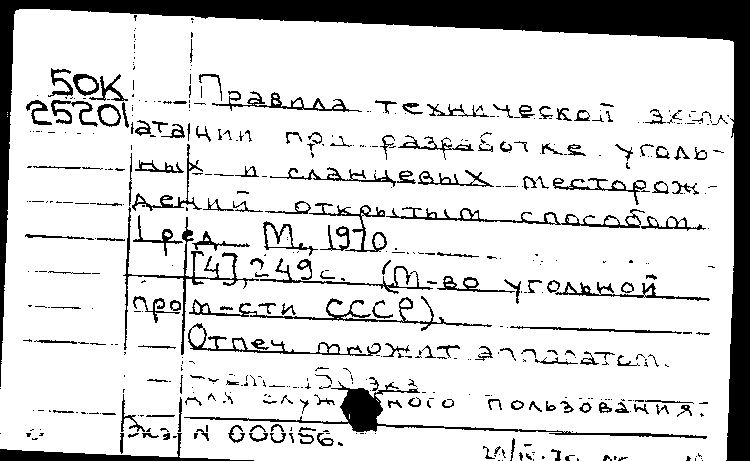 50К
25201
Правила технической эксплу
атации при разработке уголь-
ных и сланцевых месторож-
дений открытым способом.
1 ред. М., 1970.
[4], 249 с. (М-во угольной
пром-сти СССР).
Отпеч. множит аппаратом.
150 экз
для служебного пользования.
Экз. N 000156.